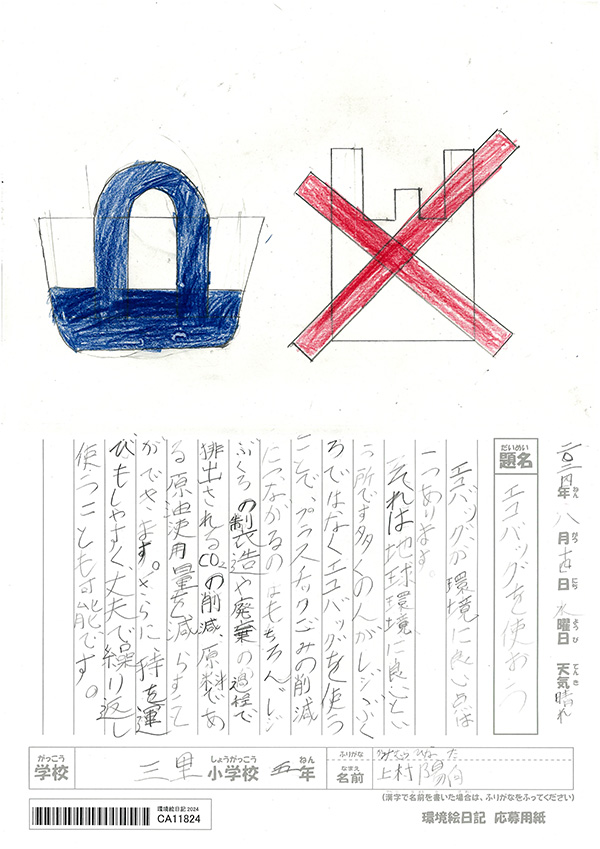 二〇二四年ねん 八月がつ 十四日にち 水曜日ようび 天気てんき 晴れ
題名だいめい エコバッグを使おう
エコバッグが環境に良い点は
二つあります。
それは地球環境に良いとい
う所です多くの人がレジぶく
ろではなくエコバッグを使う
ことで、プラスチックごみの削減
につながるのはもちろん、レジ
ぶくろの製造や廃棄の過程で
排出されるCO₂の削減、原料であ
る原油使用量を減らすこと
ができます。さらに、持ち運
びもしやすく、丈夫で繰り返し
使うことも可能です。
がっこう しょうがっこう ねん
学校 三里小学校 五年
ふりがな かみむら ひなた
なまえ
名前 上村 陽向
(漢字で名前を書いた場合は、ふりがなをふってください)
環境絵日記2024
CA11824
環境絵日記 応募用紙